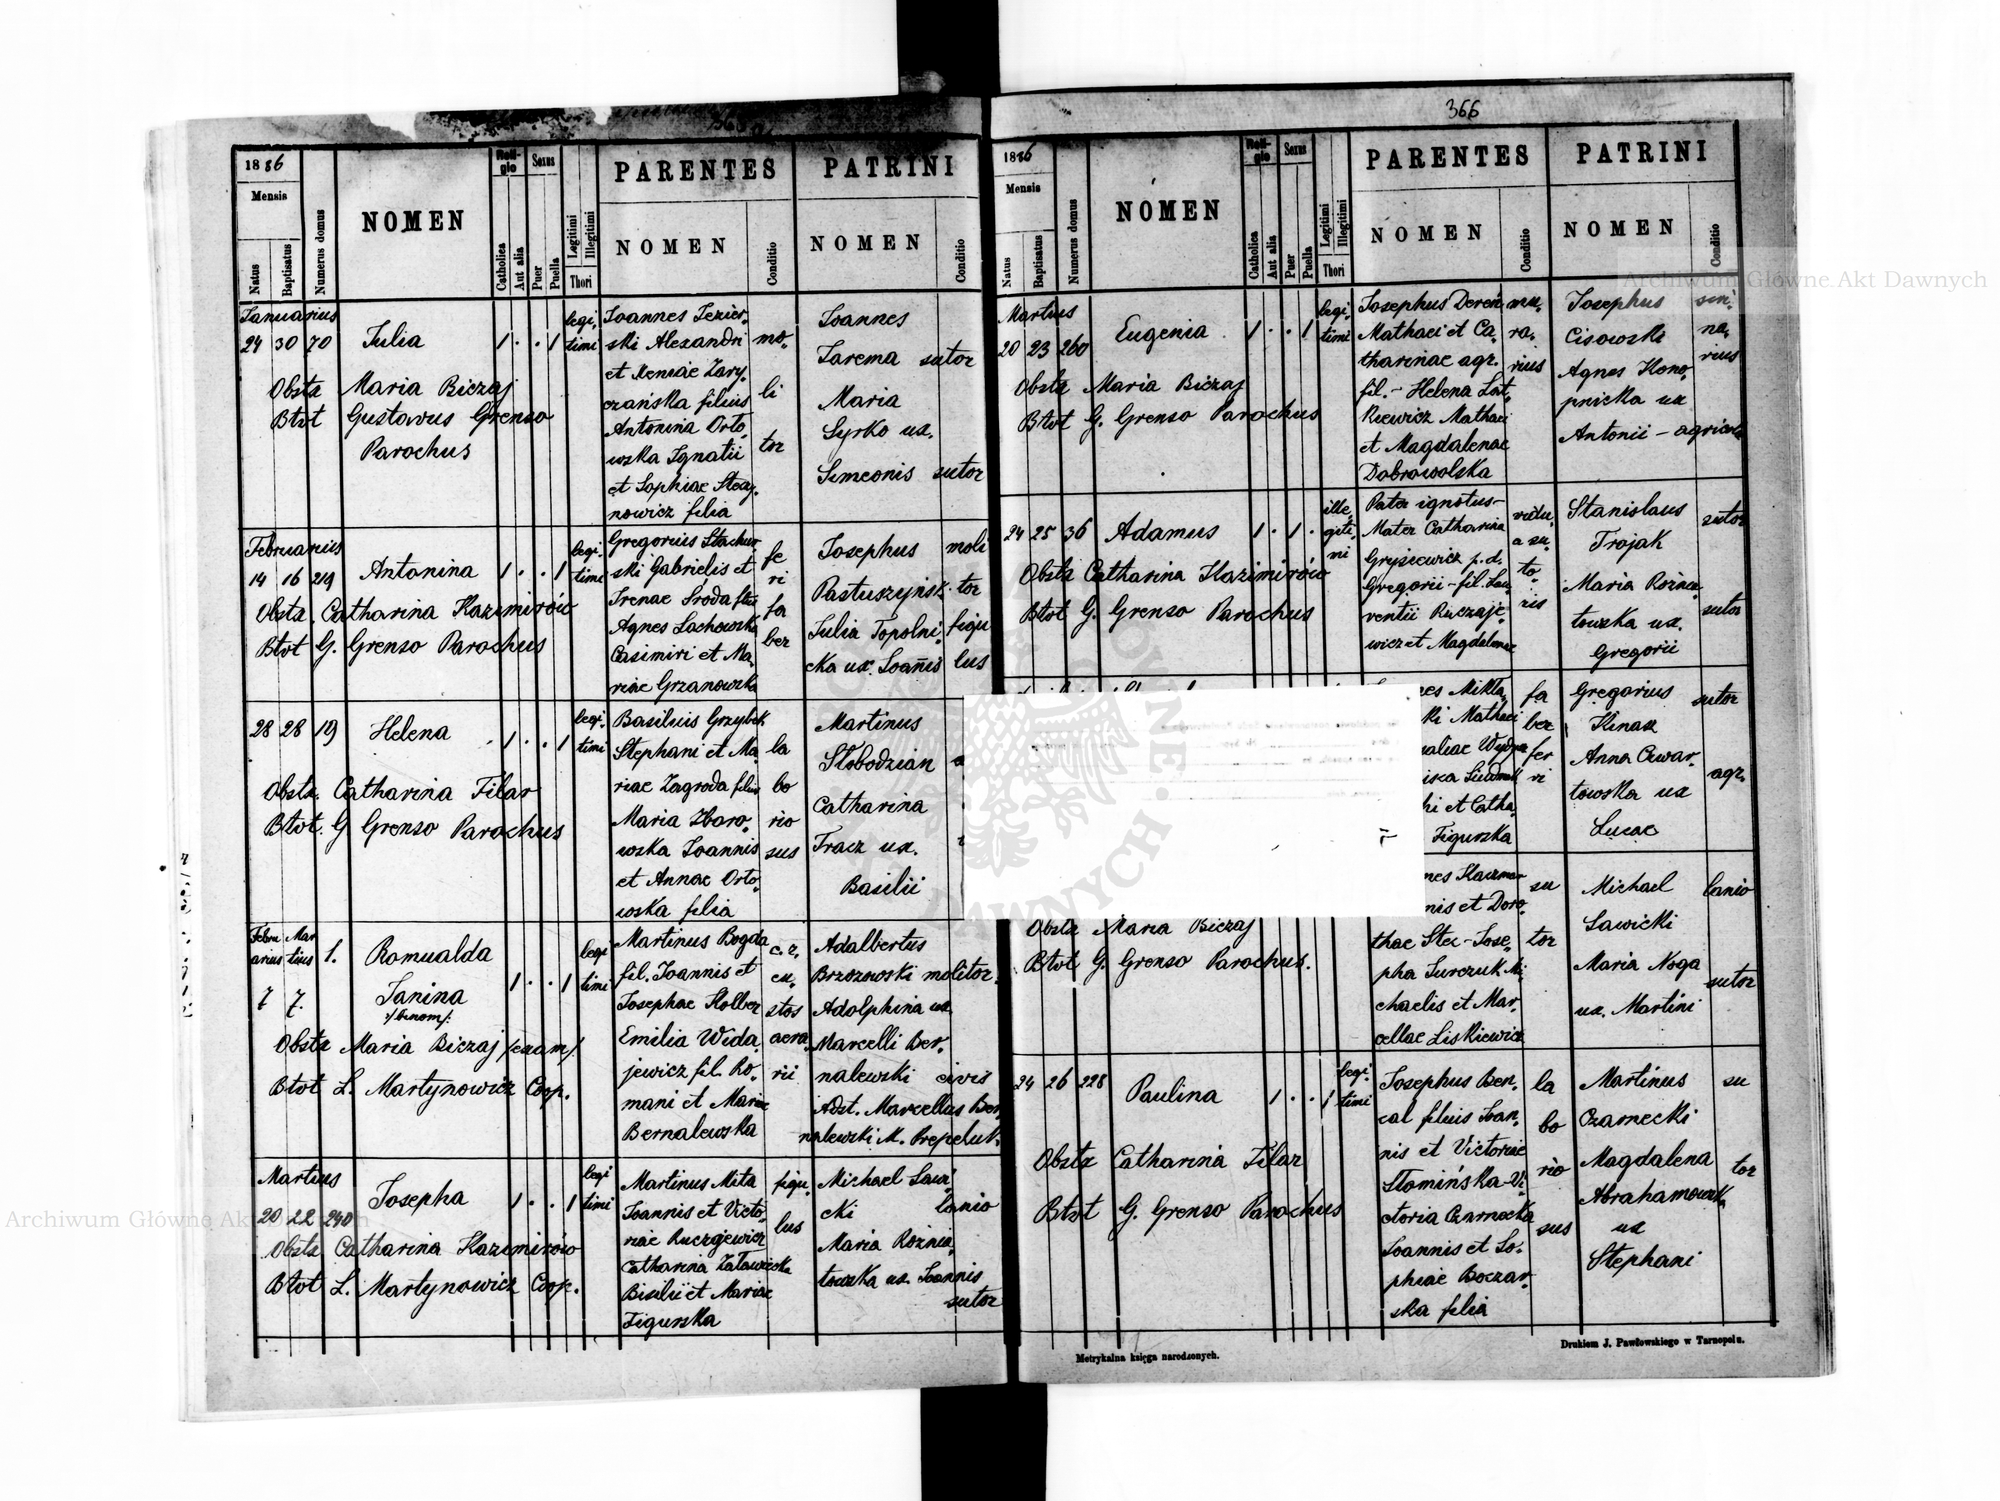 366
1886
Mensis
Natus
Baptisatus
Numerus domus
NOMEN
Religio
Catholica
Aut alia
Sexus
Puer
Puella
Legitimi
Illegitimi
Thori
PARENTES
NOMEN
Conditio
PATRINI
NOMEN
Conditio
Januarius
24 30 70
Julia
1 . . 1
legi-
timi
Obstx Maria Biczaj
Btvt Gustavus Grenso
Parochus
Joannes Jezier-
ski Alexandri
et Xeniae Zary-
czańska filius
Antonina Orto-
wska Ignatii
et Sophiae
nowicz filia
mo-
li
tor
Joannes
Jarema sutor
Maria
Syrko ux.
Simeonis sutor
Februarius
14 16 219
Antonina
1 . . 1
legi-
timi
Obstx. Catharina Kazimirów
Btvt G. Grenso Parochus
Gregorius
ski Gabrielis et
Irenae Środa
Agnes Lachowska
Casimiri et Ma-
riae Grzanowska
fe
ri
fa
ber
Josephus moli
Pastuszyńsk- tor
Julia Topolni- figu
cka ux. Joannis lus
28 28 19
Helena
1 . . 1
legi-
timi
Obstx. Catharina Filar
Btvt. G Grenso Parochus
Basilius Grzybek
Stephani et Ma-
riae Zagroda filius
Maria Zbaro-
wska Joannis
et Annae Orto-
wska filia
la
bo
rio
sus
Martinus
Słobodzian
Catharina
Tracz ux.
Basilii
Febru Mar
arius tius 1.
7 7.
Romualda
Janina
:/binom/:
1 . . 1
legi
timi
Obstx Maria Biczaj /exam/.
Btvt L. Martynowicz Coop.
Martinus Bogda
fil. Joannis et
Josephae Kolber
Emilia Wida-
jewicz fil. Ro-
mani et Mariae
Bernalewska
c. r.
cu-
stos
aera-
rii
Adalbertus
Brzozowski molitor.
Adolphina ux
Marcelli Ber-
nalewski civis
Adst. Marcellus Ber-
nalewski M. Prepeluk
Martius
20 22 240
Josepha
1 . . 1
legi
timi
Obstx Catharina Kazimirów
Btvt L. Martynowicz Coop.
Martinus Mita
Joannis et Victo-
riae Ruczajewicz
Catharina
Basilii et Mariae
Figurska
figu-
lus
Michael Sawi-
cki lanio
Maria Roznia-
towska ux Joannis
sutor
1886
Mensis
Natus
Baptisatus
Numerus domus
NOMEN
Religio
Catholica
Aut alia
Sexus
Puer
Puella
Legitimi
Illegitimi
Thori
PARENTES
NOMEN
Conditio
PATRINI
NOMEN
Conditio
Martius
20 23 260
Eugenia
1 . . 1
legi-
timi
Obstx Maria Biczaj
Btvt G. Grenso Parochus
Josephus Dereń
Mathaei et Ca-
tharinae agr.
fil. - Helena Lat-
kiewicz Mathaei
et Magdalenae
Dobrowolska
mu-
ra-
rius
Josephus
Cisowski
Agnes Kono-
pnicka ux
Antonii - agricola
24 25 36
Adamus
1 . 1 .
ille-
giti-
mi
Obstx Catharina Kazimirów
Btvt G. Grenso Parochus
Pater ignotus -
Mater Catharina
Grysiewicz p. d.
Gregorii - fil. Lau-
rentii Ruczaje-
wicz et Magdalenae
vidu-
a su-
to-
ris
Stanislaus
Trojak sutor
Maria Roznia-
towska ux. sutor
Gregorii
Mikla-
ki Mathaei
fa
ber
fer
ri
et Catha-
Figurska
Gregorius
Kinasz sutor
Anna Czwar-
towska ux agr.
Lucae
Obstx Maria Biczaj
Btvt G. Grenso Parochus.
nes Kaczmar
nis et Doro-
thae Stec - Jose-
pha Surczuk Mi-
chaelis et Mar-
cellae Liskiewicz
su
tor
Michael lanio
Sawicki
Maria Noga
ux. Martini sutor
24 26 228
Paulina
1 . . 1
legi-
timi
Obstx Catharina Filar
Btvt G. Grenso Parochus
Josephus Ben-
cal filius Joan-
nis et Victoriae
Stomińska - Vi-
ctoria Czarnecka
Joannis et So-
phiae Boczar-
ska filia
la
bo
rio
sus
Martinus su
Czarnecki
Magdalena tor
Abrahamowska
ux
Stephani
Metrykalna księga narodzonych.
Drukiem J. Pawłowskiego w Tarnopolu.
Archiwum Główne Akt Dawnych
Archiwum Główne Akt Dawnych